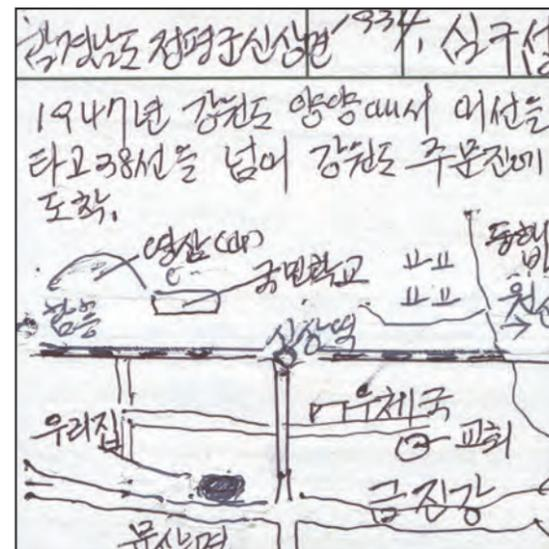 함경남도 정평군 신상면 1934. 심구섭
1947년 강원도 양양에서 어선을
타고 38선을 넘어 강원도 주문진에
도착.
국민학교
함흥
신상역
우체국
우리집
교회
금진강
문산면